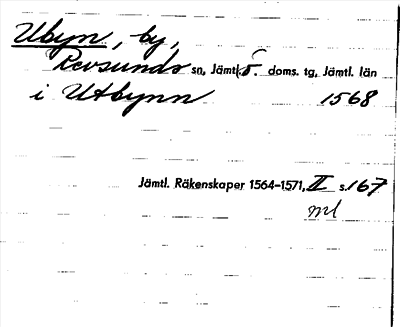 Ubyn, by,
Revsunds sn, Jämtl. S. doms. tg, Jämtl. län
i Utbynn 1568
Jämtl. Räkenskaper 1564-1571, II s. 167
ml